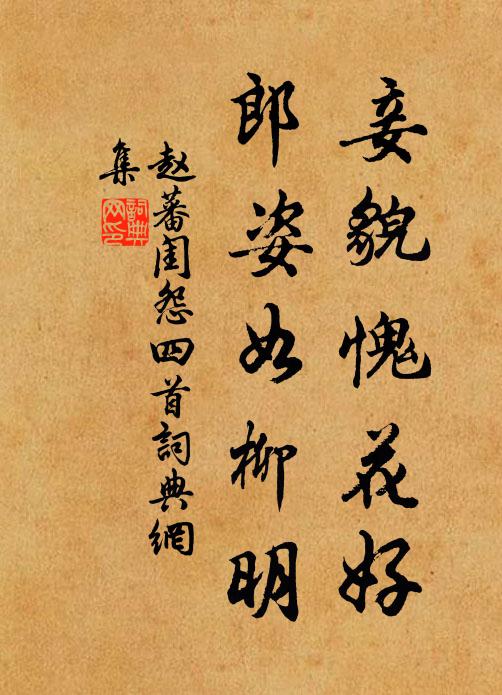 妾貌愧花好
郎姿如柳明
赵蕃闺怨四首詞典網
集
詞典
网印